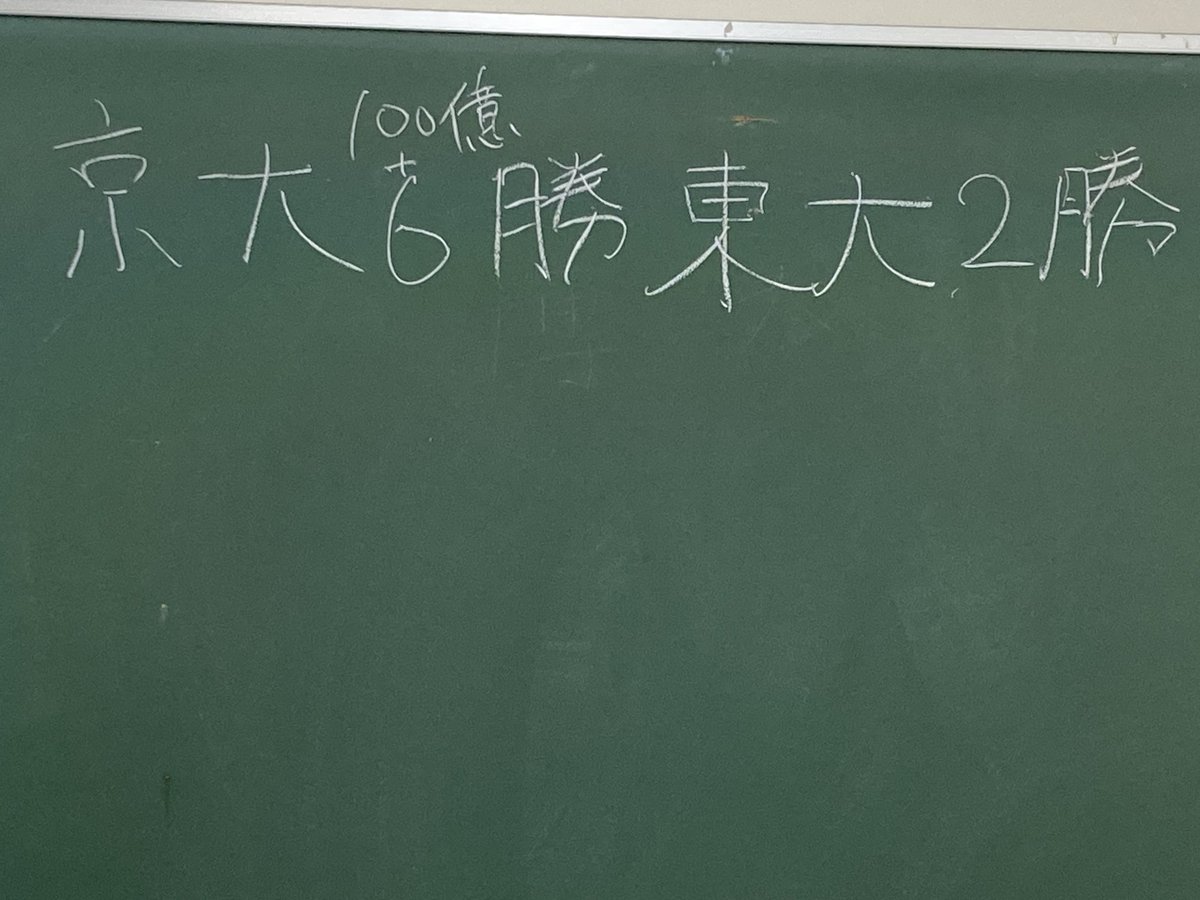 100億
+
京大6勝東大2勝